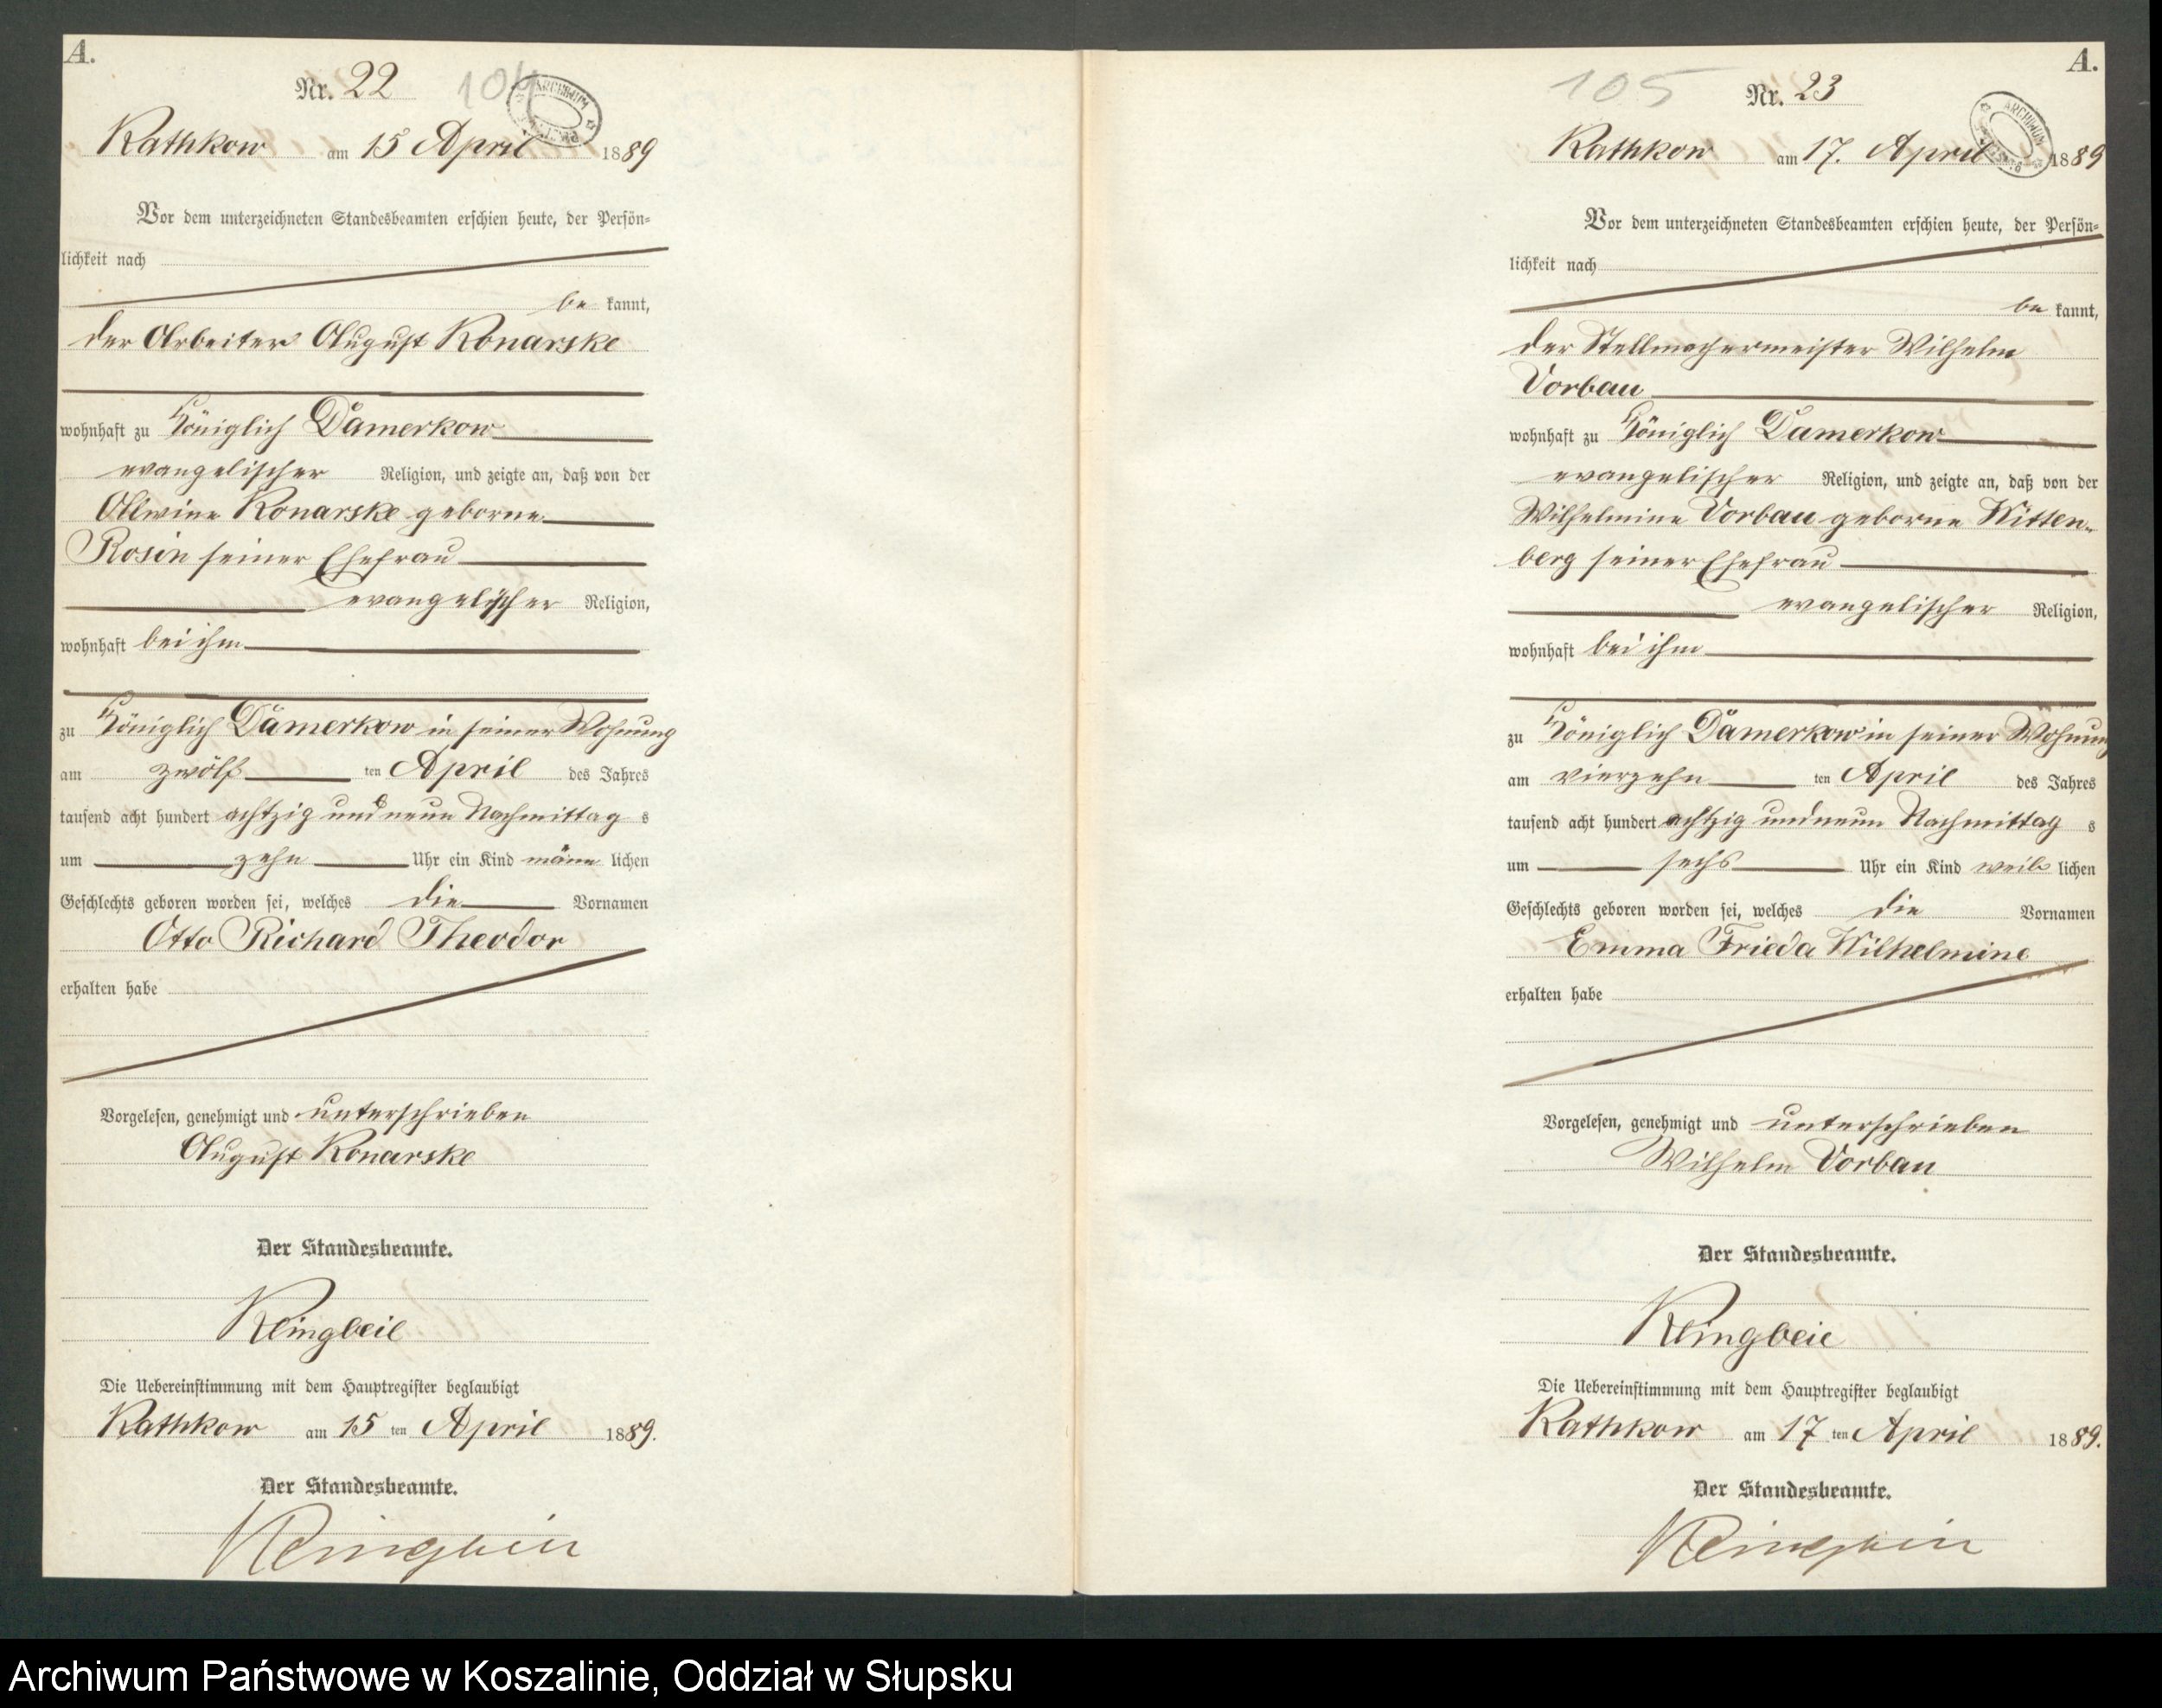 A.
Nr. 22
104
Rathkow am 15 April 1889
Vor dem unterzeichneten Standesbeamten erschien heute, der Persön-
lichkeit nach
be kannt,
der Arbeiter August Konarske
wohnhaft zu Königlich Damerkow
evangelischer Religion, und zeigte an, daß von der
Allwine Konarske geborne
Rosin seiner Ehefrau
evangelischer Religion,
wohnhaft bei ihm
zu Königlich Damerkow in seiner Wohnung
am zwölf ten April des Jahres
tausend acht hundert achtzig und neun Nachmittag s
um zehn Uhr ein Kind männ lichen
Geschlechts geboren worden sei, welches die Vornamen
Otto Richard Theodor
erhalten habe
Vorgelesen, genehmigt und unterschrieben
August Konarske
Der Standesbeamte.
Klingbeil
Die Uebereinstimmung mit dem Hauptregister beglaubigt
Rathkow am 15 ten April 1889.
Der Standesbeamte.
Klingbeil
A.
105
Nr. 23
Rathkow am 17. April 1889
Vor dem unterzeichneten Standesbeamten erschien heute, der Persön-
lichkeit nach
be kannt,
der Stellmachermeister Wilhelm
Vorbau
wohnhaft zu Königlich Damerkow
evangelischer Religion, und zeigte an, daß von der
Wilhelmine Vorbau geborne Witten-
berg seiner Ehefrau
evangelischer Religion,
wohnhaft bei ihm
zu Königlich Damerkow in seiner Wohnung
am vierzehn ten April des Jahres
tausend acht hundert achtzig und neun Nachmittag s
um sechs Uhr ein Kind weib lichen
Geschlechts geboren worden sei, welches die Vornamen
Emma Frieda Wilhelmine
erhalten habe
Vorgelesen, genehmigt und unterschrieben
Wilhelm Vorbau
Der Standesbeamte.
Klingbeil
Die Uebereinstimmung mit dem Hauptregister beglaubigt
Rathkow am 17 ten April 1889.
Der Standesbeamte.
Klingbeil
Archiwum Państwowe w Koszalinie, Oddział w Słupsku